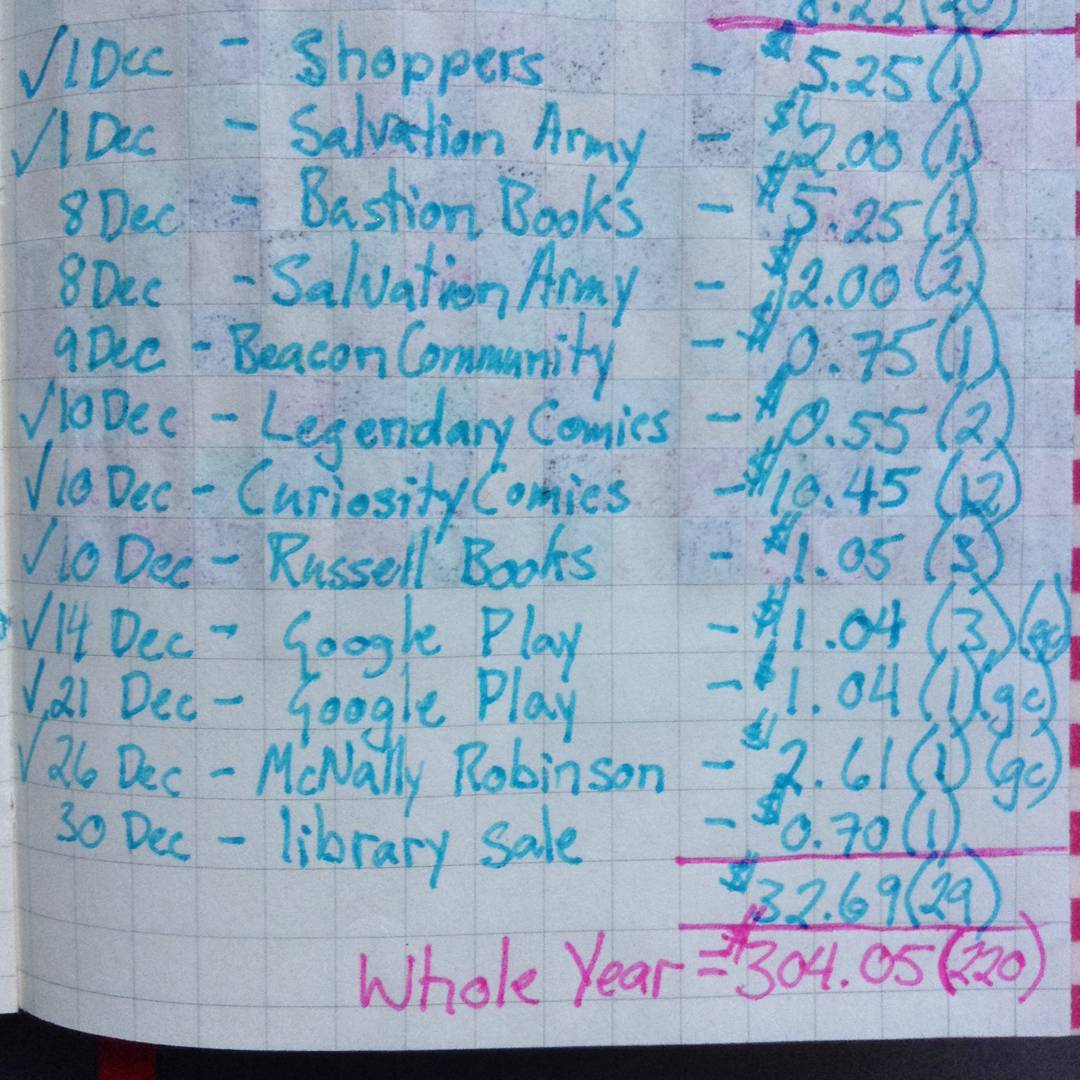 8.22 (20)
√1 Dec - Shoppers - $5.25 (1)
√1 Dec - Salvation Army - $2.00 (1)
8 Dec - Bastion Books - $5.25 (1)
8 Dec - Salvation Army - $2.00 (2)
9 Dec - Beacon Community - $0.75 (1)
√10 Dec - Legendary Comics - $0.55 (2)
√10 Dec - Curiosity Comics - $10.45 (12)
√10 Dec - Russell Books - $1.05 (3)
√14 Dec - Google Play - $1.04 (3) (gc)
√21 Dec - Google Play - $1.04 (1) (gc)
√26 Dec - McNally Robinson - $2.61 (1) (gc)
30 Dec - library sale - $0.70 (1)
$32.69 (29)
Whole Year = $304.05 (220)